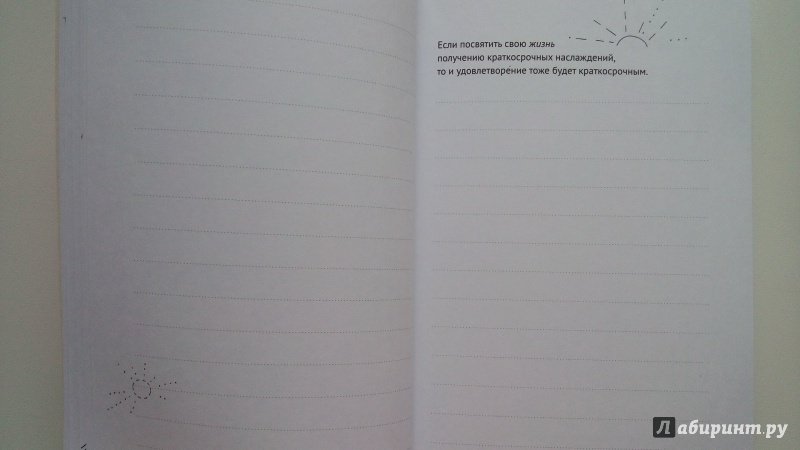 Если посвятить свою жизнь
получению краткосрочных наслаждений,
то и удовлетворение тоже будет краткосрочным.
Лабиринт.ру